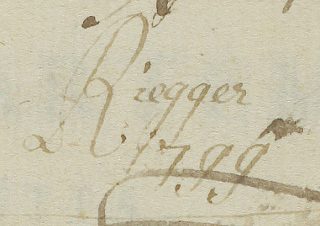 Riegger
1799